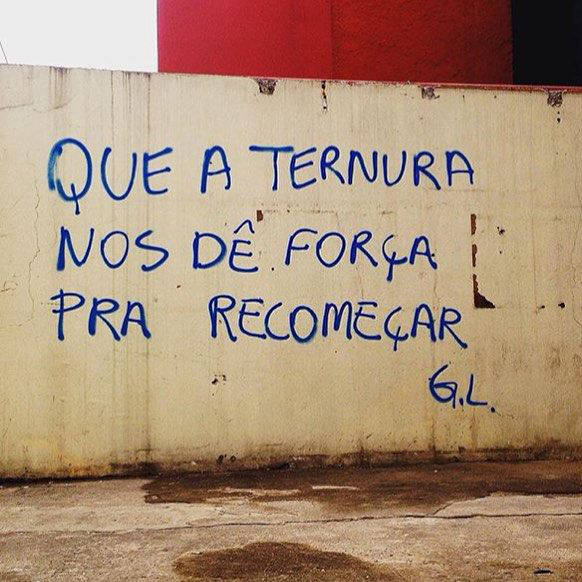 QUE A TERNURA
NOS DÊ FORÇA
PRA RECOMEÇAR
G.L.